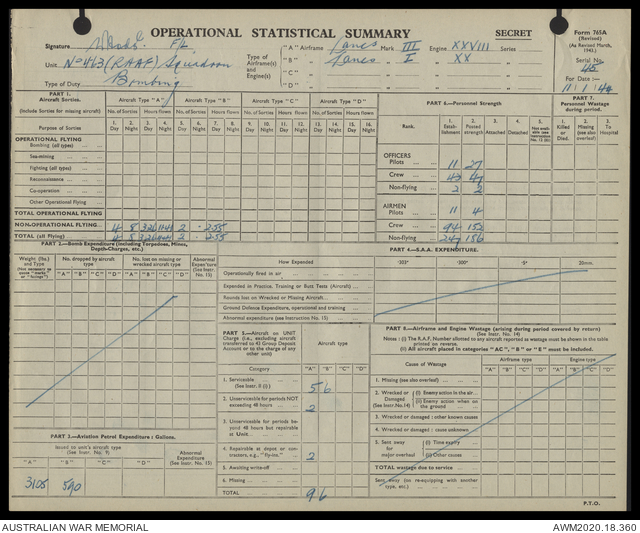 OPERATIONAL STATISTICAL SUMMARY
SECRET
Form 765A
(Revised)
(As Revised March, 1943.)
Serial No. 45
For Date :—
11/1/44
Signature F/L
Unit No 463 (RAAF) Squadron
Type of Duty Bombing
Type of Airframe(s) and Engine(s)
"A" Airframe Lancs Mark III Engine XXVIII Series
"B" Lancs I XX
"C"
"D"
PART 1.
Aircraft Sorties.
(Include Sorties for missing aircraft)
Aircraft Type "A" Aircraft Type "B" Aircraft Type "C" Aircraft Type "D"
No. of Sorties Hours flown No. of Sorties Hours flown No. of Sorties Hours flown No. of Sorties Hours flown
Purpose of Sorties
1. Day 2. Night 3. Day 4. Night 5. Day 6. Night 7. Day 8. Night 9. Day 10. Night 11. Day 12. Night 13. Day 14. Night 15. Day 16. Night
OPERATIONAL FLYING
Bombing (all types)
Sea-mining
Fighting (all types)
Reconnaissance
Co-operation
Other Operational Flying
TOTAL OPERATIONAL FLYING
NON-OPERATIONAL FLYING 4 8 2 . 2.55
TOTAL (all Flying) 4 8 2 . 2.55
PART 6.—Personnel Strength
Rank.
1. Establishment
2. Posted strength
3. Attached
4. Detached
5. Not available
PART 7.
Personnel Wastage during period.
1. Killed or Died.
2. Missing (see also overleaf)
3. To Hospital
OFFICERS
Pilots 11 27
Crew 43 47
Non-flying 2 2
AIRMEN
Pilots 11 4
Crew 94 152
Non-flying 247 186
PART 2.—Bomb Expenditure (including Torpedoes, Mines, Depth-Charges, etc.)
Weight (lbs.) and Type
No. dropped by aircraft type
No. lost on missing or wrecked aircraft type
Abnormal Expenditure (See Instr. No. 15)
"A" "B" "C" "D" "A" "B" "C" "D"
PART 4.—S.A.A. EXPENDITURE.
How Expended
·303" ·300" ·5" 20mm.
Operationally fired in air
Expended in Practice, Training or Butt Tests (Aircraft)
Rounds lost on Wrecked or Missing Aircraft
Ground Defence Expenditure, operational and training
Abnormal expenditure (see Instruction No. 15)
PART 5.—Aircraft on UNIT Charge (i.e., excluding aircraft transferred to 43 Group Deposit Account or to the charge of any other unit)
Aircraft type
Category "A" "B" "C" "D"
1. Serviceable (See Instr. II (i).) 5 6
2. Unserviceable for periods NOT exceeding 48 hours 2
3. Unserviceable for periods beyond 48 hours but repairable at Unit
4. Repairable at depot or contractors, e.g., "fly-ins." 2
5. Awaiting write-off
6. Missing
TOTAL 9 6
PART 8.—Airframe and Engine Wastage (arising during period covered by return)
(See Instr. No. 14)
Notes : (i) The R.A.F. Number allotted to any aircraft reported as wastage must be shown in the table printed on reverse.
(ii) All aircraft placed in categories "AC", "B" or "E" must be included.
Cause of Wastage
Airframe type
Engine type
"A" "B" "C" "D" "A" "B" "C" "D"
1. Missing (see also overleaf)
2. Wrecked or Damaged (See Instr. No.14)
(i) Enemy action in the air
(ii) Enemy action when on the ground
3. Wrecked or damaged : other known causes
4. Wrecked or damaged : cause unknown
5. Sent away for major overhaul
(i) Time expiry
(ii) Other causes
TOTAL wastage due to service
Sent away (on re-equipping with another type, etc.)
PART 3.—Aviation Petrol Expenditure : Gallons.
Issued to unit's aircraft type
(See Instr. No. 9)
Abnormal Expenditure
(See Instr. No. 15)
"A" "B" "C" "D"
3105 590
P.T.O.
AUSTRALIAN WAR MEMORIAL
AWM2020.18.360